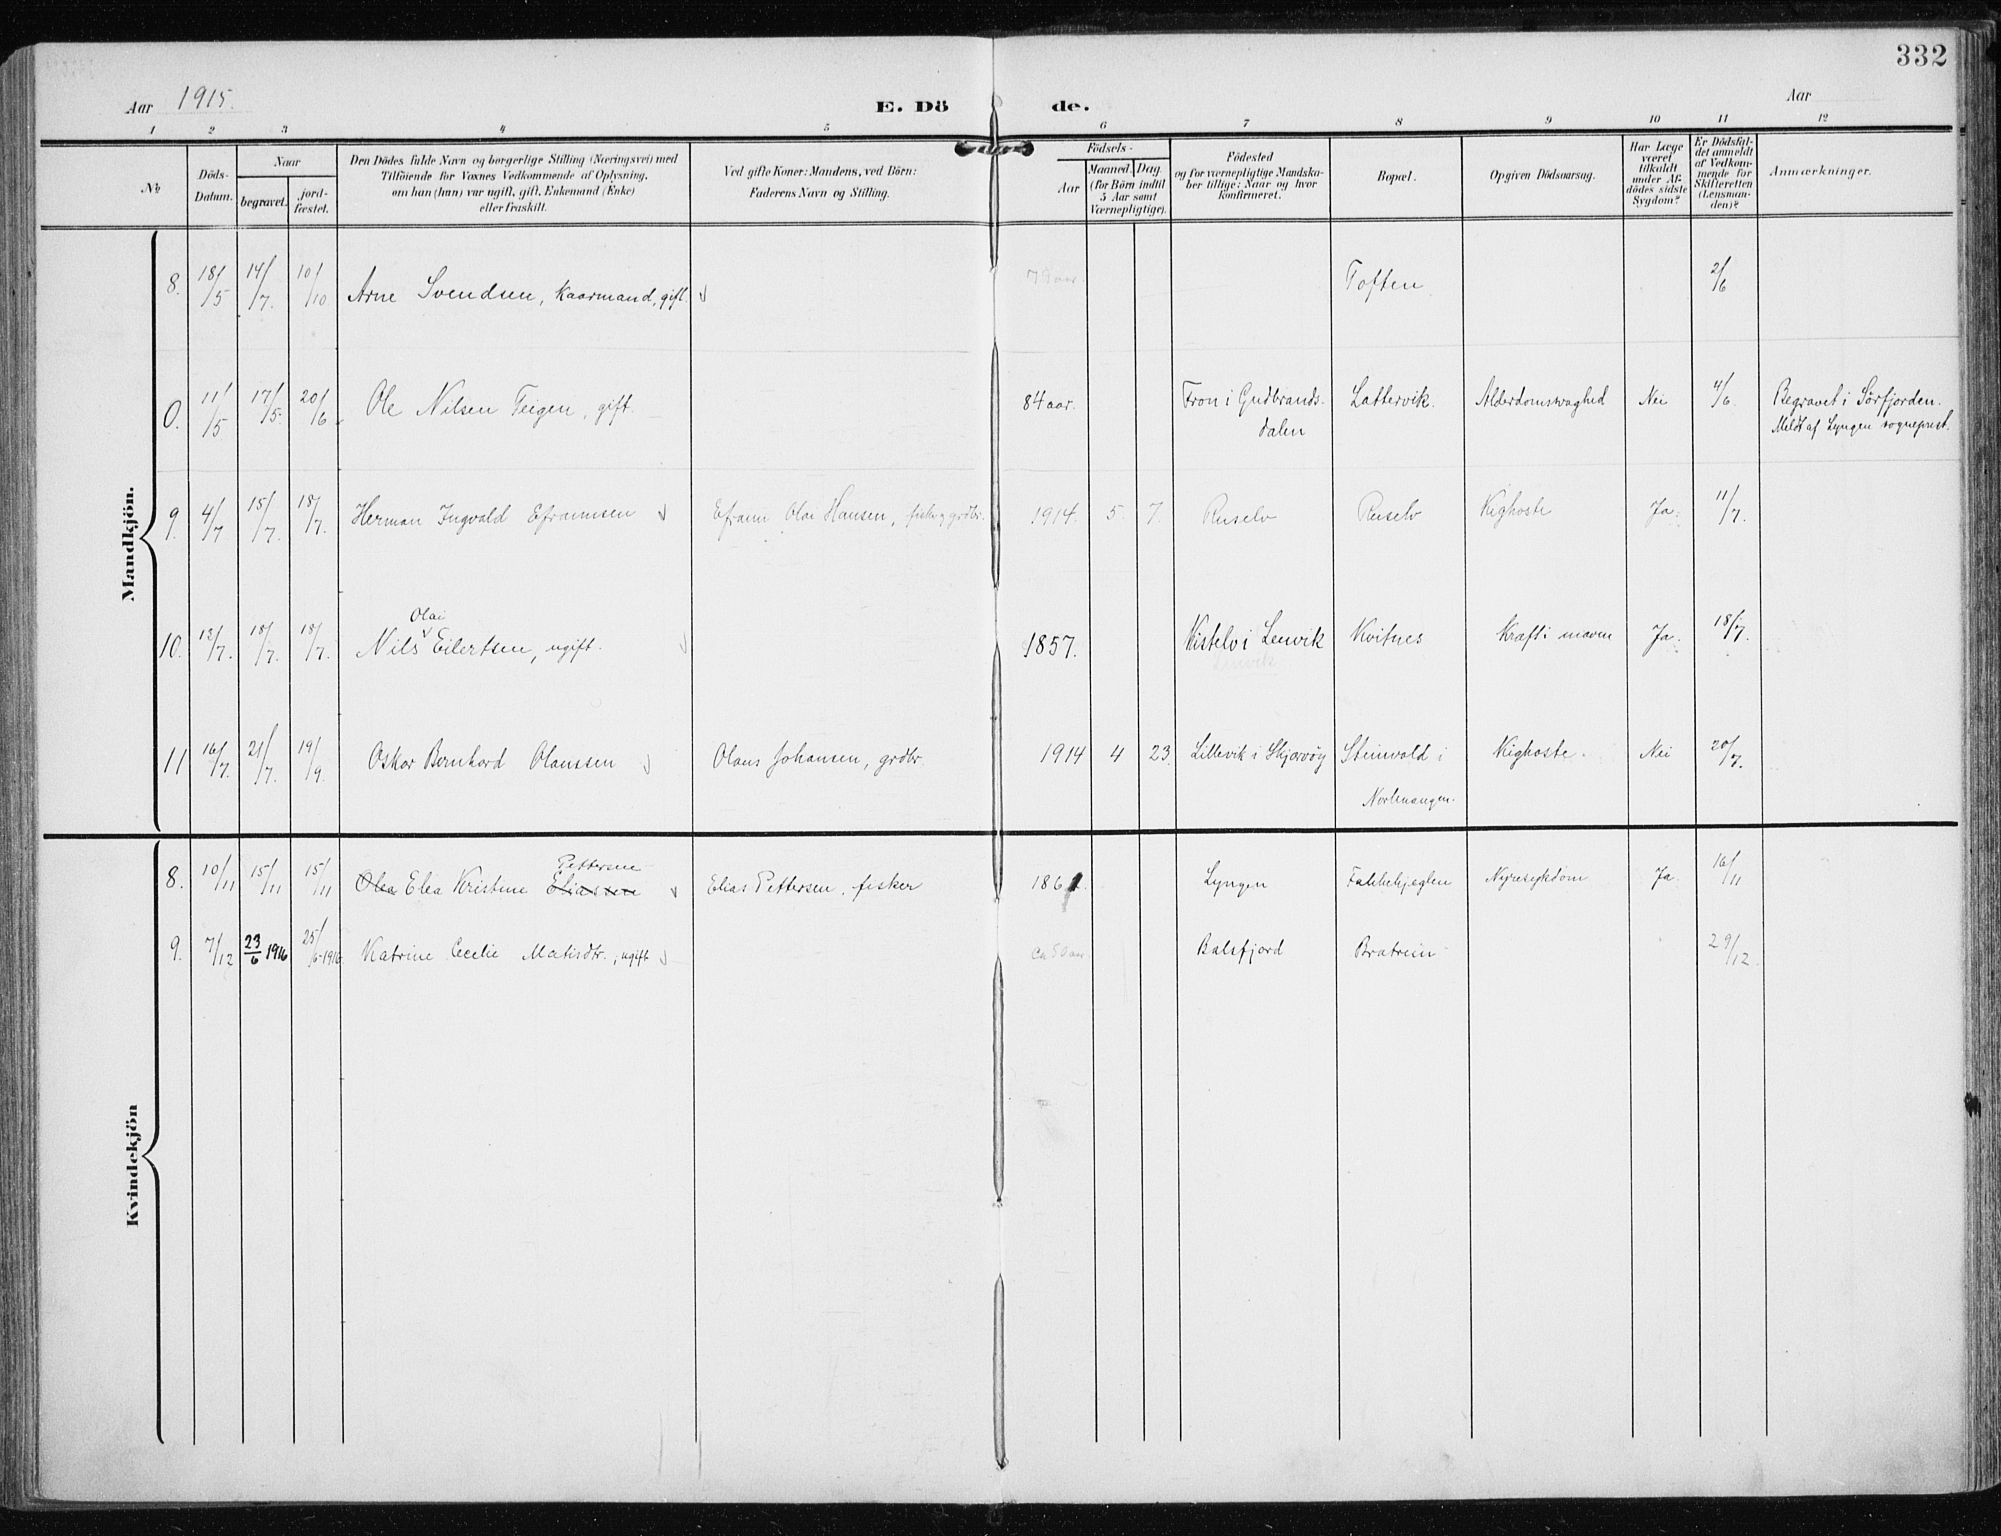 332
Aar 1915.
E. Dö de.
Aar
1 2 3 4 5 6 7 8 9 10 11 12
No
Döds-Datum.
Naar
begravet.
jord-fæstet.
Den Dödes fulde Navn og borgerlige Stilling (Næringsvei) med
Tilföiende for Voxnes Vedkommende af Oplysning,
om han (hun) var ugift, gift, Enkemand (Enke)
eller fraskilt.
Ved gifte Koner: Mandens, ved Börn:
Faderens Navn og Stilling.
Födsels-
Aar
Maaned. Dag.
(for Börn indtil
5 Aar samt
Værnepligtige).
Födested
og for værnepligtige Mandska-
ber tillige: Naar og hvor
konfirmeret.
Bopæl.
Opgiven Dödsaarsag.
Har Læge
været
tilkaldt
under Af-
dödes sidste
Sygdom?
Er Dödsfal-
det anmeldt
af Vedkom-
mende for
Skifteretten
(Lensman-
den)?
Anmærkninger.
Mandkjön.
8. 18/5 14/7. 10/10 Arne Svendsen, Kaarmand, gift. Toften 2/6
0. 11/5 17/5. 20/6 Ole Nilsen Teigen, gift. 84 aar. Fron i Gudbrands- Lattervik. Alderdomsvaghed Nei 4/6 Begravet i Sørfjorden.
dalen Meldt af Lyngen sogneprest.
9. 4/7 15/7. 18/7. Herman Ingvald Eframsen Efraim Olai Hansen, fisk og grdbr. 1914. 5. 7. Ruselv Ruselv Kighoste Ja. 11/7.
Olai
10. 12/7. 18/7. 18/7. Nils Eilertsen, ugift. 1857. Kistelv i Lenvik Kvitnes Kræft i maven Ja. 18/7.
Lenvik
11 16/7. 21/7. 19/9. Oskar Bernhard Olaussen Olaus Johansen, grdbr. 1914 4 23. Lillevik i Skjærvøy Steinvold i Kighoste. Nei 20/7.
Nordlenangen.
Kvindekjön
Pettersen
8. 10/11 15/11 15/11 Olea Elea Kristine Eliassen Elias Pettersen, fisker 1861. Lyngen Nyresykdom Ja. 16/11
9. 7/12 23/6 1916 25/6 1916 Katrine Cecilie Matisdtr., ugift ca 50 aar Balsfjord Bratrein 29/12.